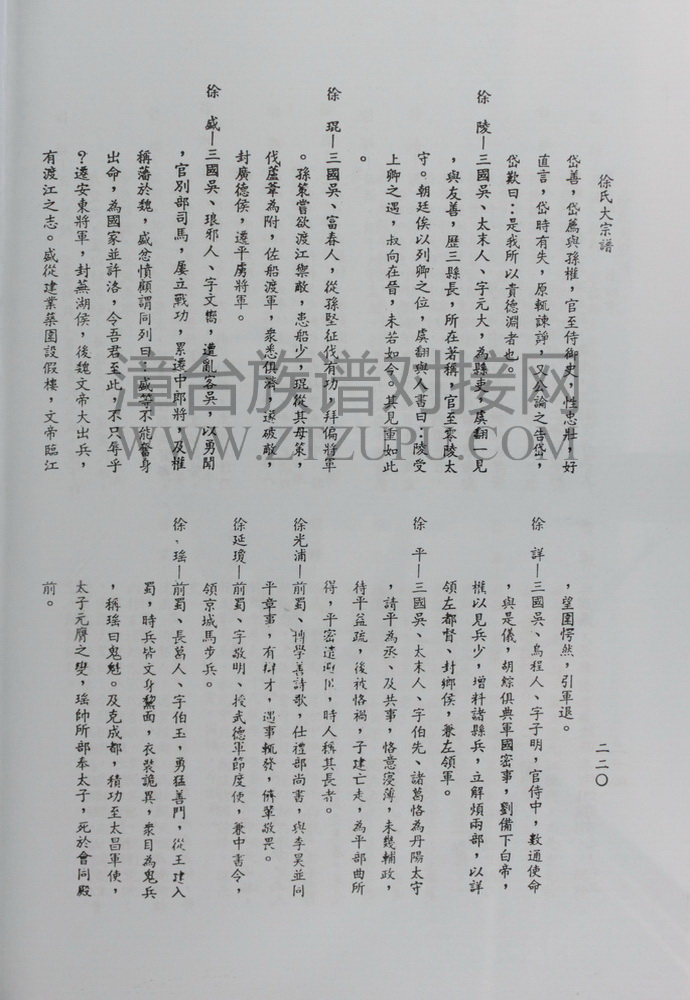 徐氏大宗譜
岱善，岱薦與孫權，官至侍御史，性忠壯，好
直言，岱時有失，原輒諫諍，又公論之告岱，
岱歎曰：是我所以貴德淵者也。
徐　陵—三國吳、太末人、字元大，為縣吏，虞翻一見
，與友善，歷三縣長，所在著稱，官至零陵太
守。朝廷俟以列卿之位，虞翻與人書曰：陵受
上卿之遇，叔向在晉，未若如今。其見重如此
。
徐　琨—三國吳、富春人，從孫堅征伐有功，拜偏將軍
。孫策嘗欲渡江禦敵，患船少，琨從其母策，
伐蘆葦為附，佐船渡軍，衆悉俱濟，遂破敵，
封廣德侯，遷平虜將軍。
徐　盛—三國吳、琅邪人、字文嚮，遭亂客吳，以勇聞
，官別部司馬，屢立戰功，累遷中郎將，及權
稱藩於魏，盛忿憤顧謂同列曰：盛等不能奮身
出命，為國家並許洛，令吾君至此，不只辱乎
？遷安東將軍，封蕪湖侯，後魏文帝大出兵，
有渡江之志。盛從建業築圍設假樓，文帝臨江
，望圍愕然，引軍退。
徐　詳—三國吳、烏程人、字子明，官侍中，數通使命
，與是儀，胡綜俱典軍國密事，劉備下白帝，
權以見兵少，增料諸縣兵，立解煩兩部，以詳
領左都督、封鄉侯，兼左領軍。
徐　平—三國吳、太末人、字伯先、諸葛恪為丹陽太守
，請平為丞、及共事，恪意寖薄，未幾輔政，
待平益疏，後被恪禍，子建亡走，為平部曲所
得，平密遣，時人稱其長者。
徐光浦—前蜀、博學善詩歌，仕禮部尚書，與李昊並同
平章事，有辯才，遇事輒發，儕輩敬畏。
徐延瓊—前蜀、字敬明、授武德軍節度使，兼中書令，
領京城馬步兵。
徐　瑤—前蜀、長葛人、字伯玉，勇猛善鬥，從王建入
蜀，時兵皆文身黧面，衣裝詭異，衆目為鬼兵
，稱瑤曰鬼魁。及克成都，積功至太昌軍使，
太子元膺之變，瑤帥所部奉太子，死於會同殿
前。
二二〇
漳台族谱对接网
WWW.ZTZUPU.COM